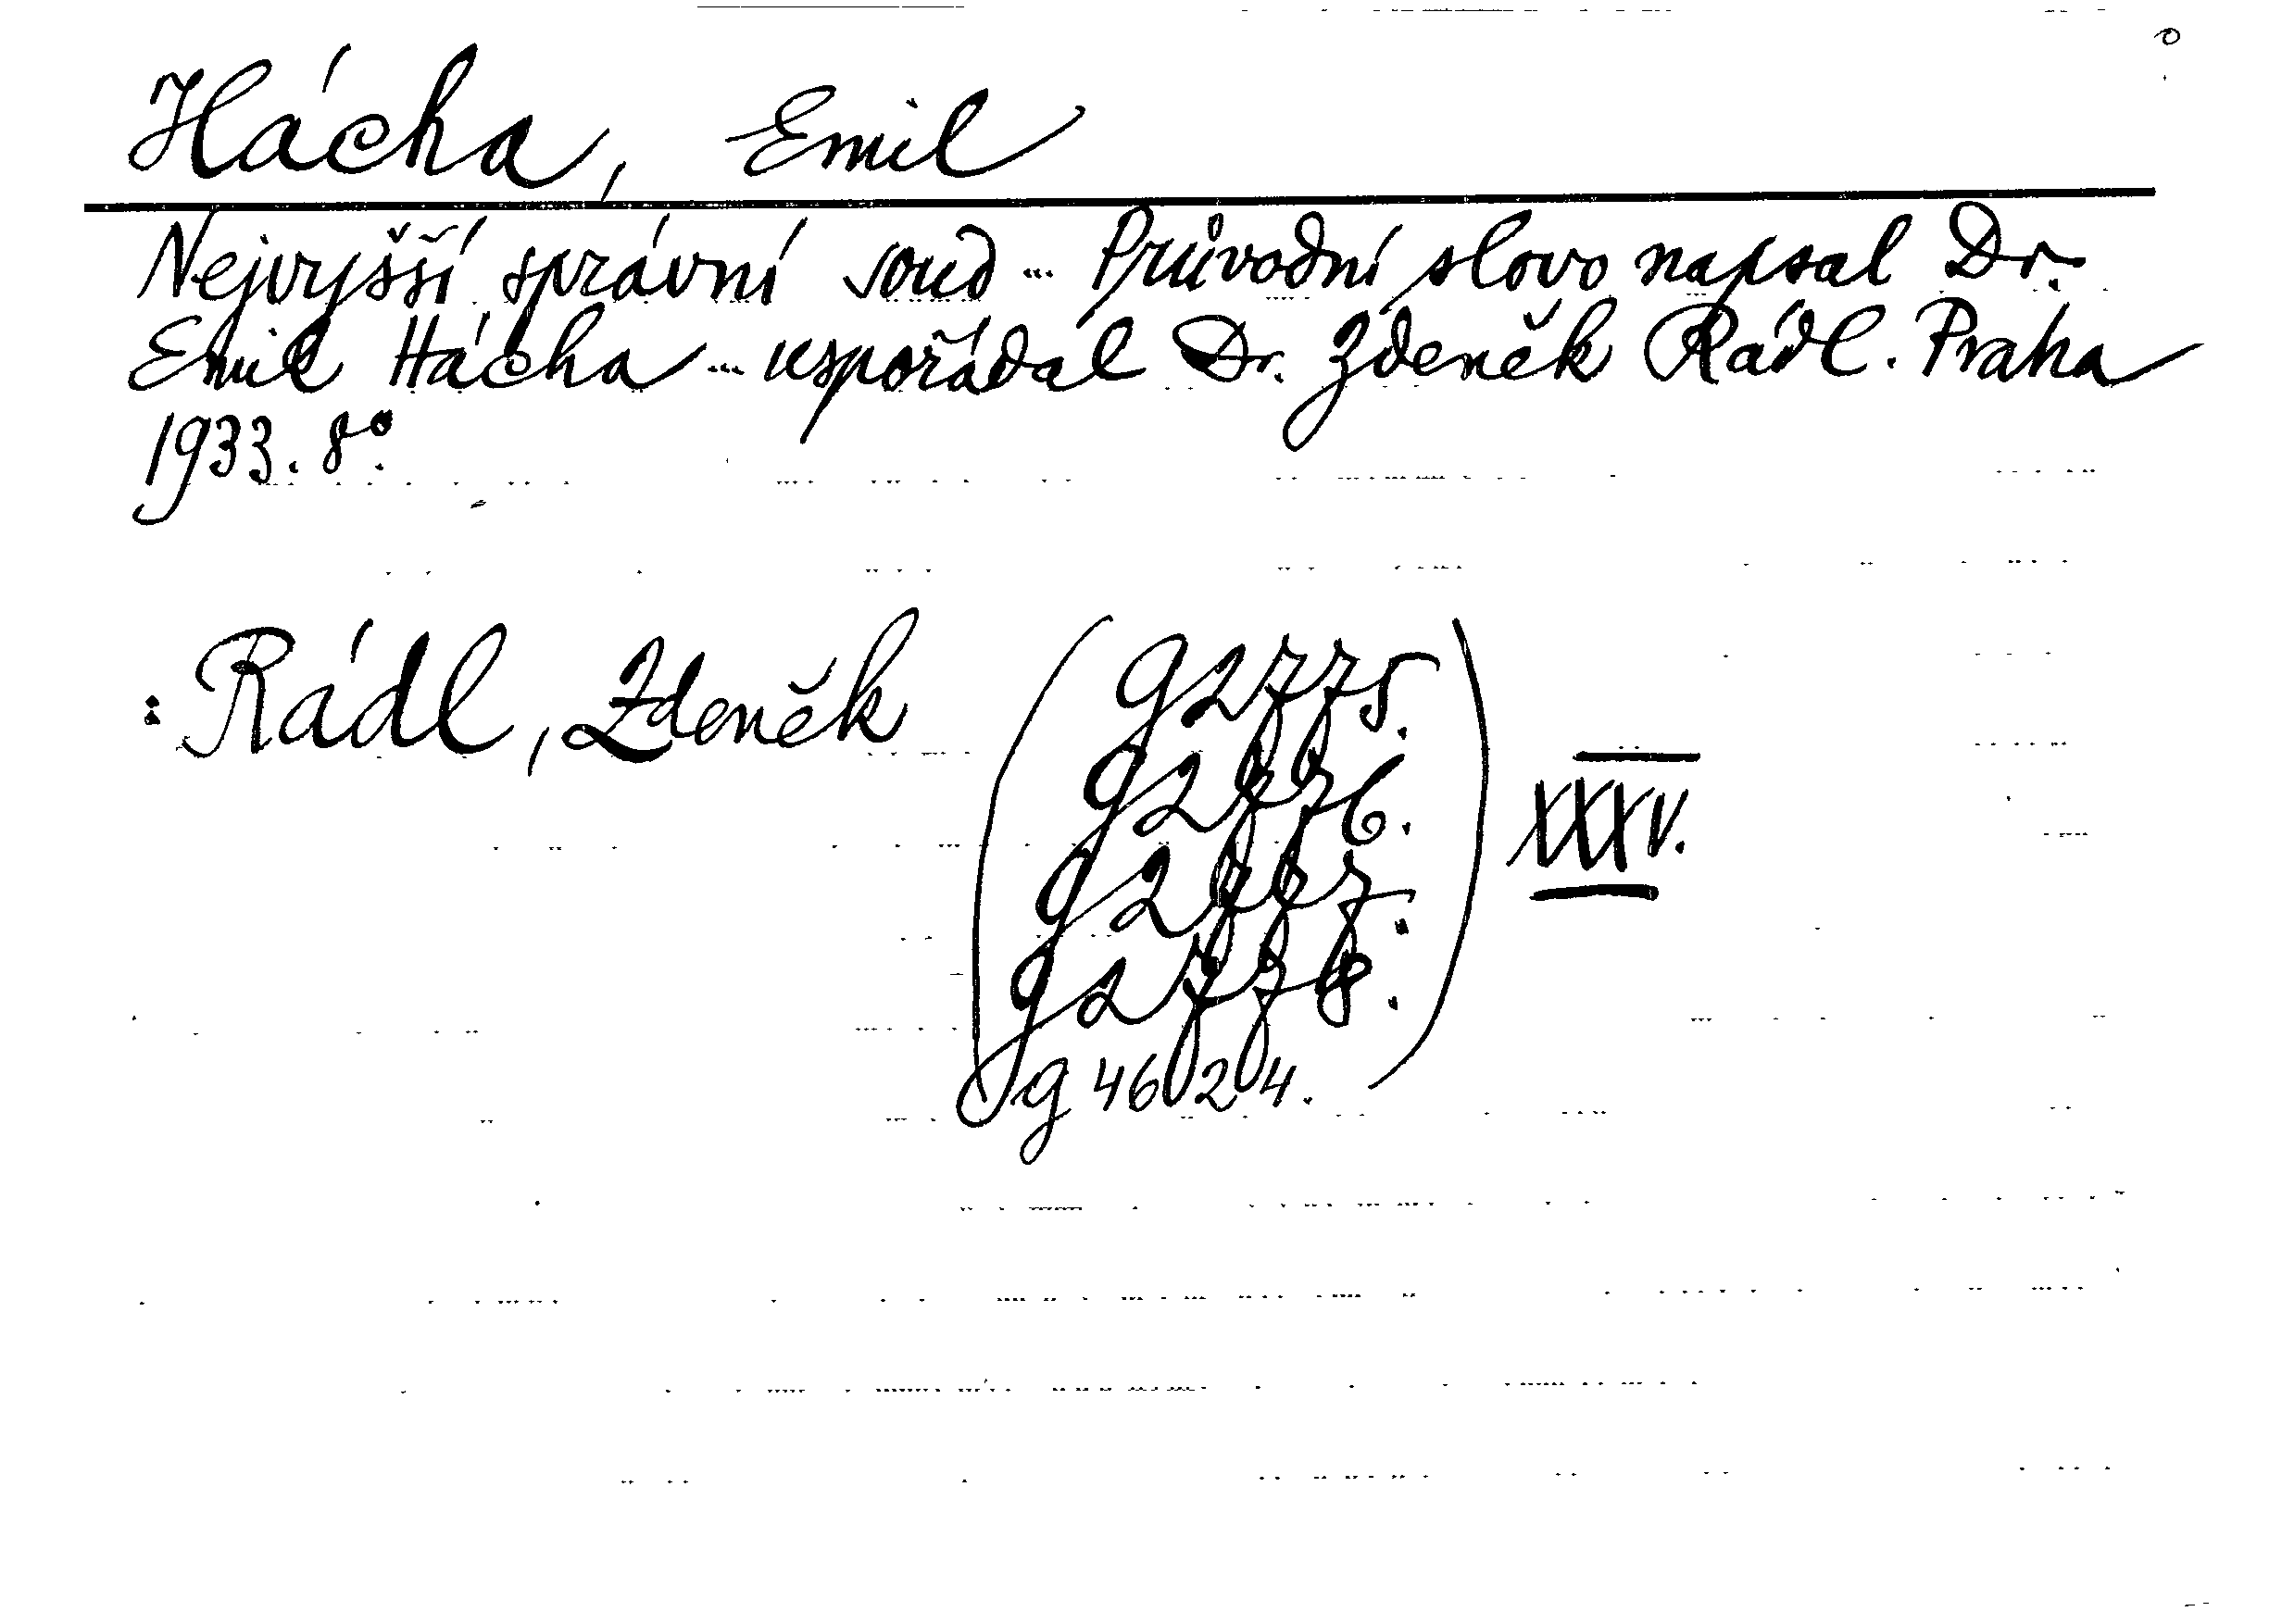 Hácha, Emil
Nejvyšší správní soud ... Průvodní slovo napsal Dr.
Emil Hácha ... uspořádal Dr. Zdeněk Rádl. Praha
1933. 8°.
: Rádl, Zdeněk
(g 2775.
g 2776.
g 2777.
g 2778.)
XXXV.
g 46024.